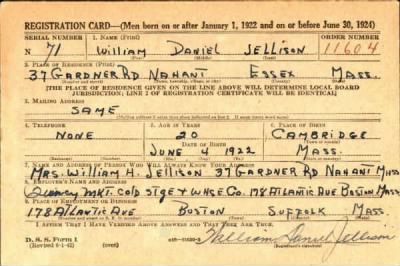 REGISTRATION CARD—(Men born on or after January 1, 1922 and on or before June 30, 1924)
SERIAL NUMBER 1. NAME (Print) ORDER NUMBER
N 71 William Daniel Jellison 11604
2. PLACE OF RESIDENCE (Print)
37 Gardner Rd Nahant Essex Mass.
[THE PLACE OF RESIDENCE GIVEN ON THE LINE ABOVE WILL DETERMINE LOCAL BOARD
JURISDICTION; LINE 2 OF REGISTRATION CERTIFICATE WILL BE IDENTICAL]
3. MAILING ADDRESS
SAME
4. TELEPHONE 5. AGE IN YEARS 6. PLACE OF BIRTH
NONE 20 CAMBRIDGE
DATE OF BIRTH
JUNE 4 1922 MASS
7. NAME AND ADDRESS OF PERSON WHO WILL ALWAYS KNOW YOUR ADDRESS
Mrs. William H. Jellison 37 Gardner Rd Nahant Mass
8. EMPLOYER'S NAME AND ADDRESS
Quincy Mkt. Cold Stge & Whse Co. 178 Atlantic Ave Boston Mass.
9. PLACE OF EMPLOYMENT OR BUSINESS
178 Atlantic Ave Boston Suffolk Mass.
I AFFIRM THAT I HAVE VERIFIED ABOVE ANSWERS AND THAT THEY ARE TRUE.
D. S. S. Form 1
William Daniel Jellison